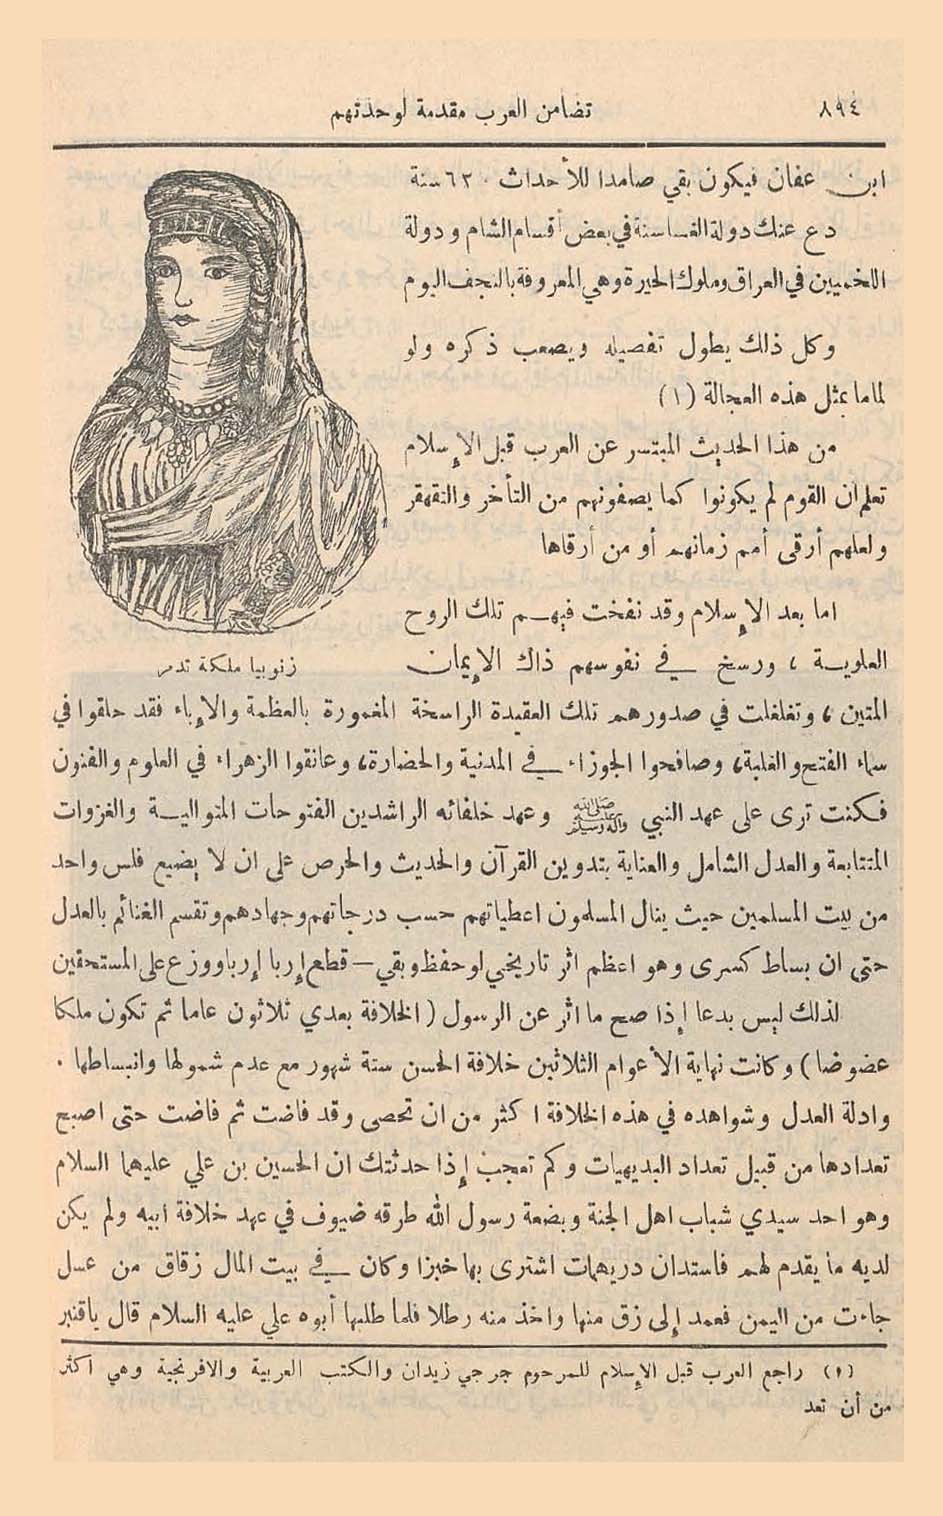 ٨٩٤
تضامن العرب مقدمة لوحدتهم
ابن عفان فيكون بقي صامدا للأحداث ٦٢٠ سنة
دع عنك دولة الغساسنة في بعض أقسام الشام ودولة
اللخميين في العراق وملوك الحيرة وهي المعروفة بالنجف اليوم
وكل ذلك يطول تفصيله ويصعب ذكره ولو
لماما بمثل هذه العجالة (١)
من هذا الحديث المبتسر عن العرب قبل الإسلام
تعلم ان القوم لم يكونوا كما يصفونهم من التأخر والتقهقر
ولعلهم أرقى أمم زمانهم أو من أرقاها
اما بعد الإسلام وقد نفخت فيهم تلك الروح
العلوية ، ورسخ في نفوسهم ذاك الإيمان
زنوبيا ملكة تدمر
المتين ، وتغلغلت في صدورهم تلك العقيدة الراسخة المغمورة بالعظمة والإباء فقد حلقوا في
سماء الفتح والغلبة ، وصافحوا الجوزاء في المدنية والحضارة ، وعانقوا الزهراء في العلوم والفنون
فكنت ترى على عهد النبي ﷺ وعهد خلفائه الراشدين الفتوحات المتوالية والغزوات
المتتابعة والعدل الشامل والعناية بتدوين القرآن والحديث والحرص على ان لا يضيع فلس واحد
من بيت المسلمين حيث ينال المسلمون اعطياتهم حسب درجاتهم وجهادهم وتقسم الغنائم بالعدل
حتى ان بساط كسرى وهو اعظم اثر تاريخي لو حفظ وبقي — قطع إربا إربا ووزع على المستحقين
لذلك ليس بدعا إذا صح ما اثر عن الرسول ( الخلافة بعدي ثلاثون عاما ثم تكون ملكا
عضوضا ) وكانت نهاية الأعوام الثلاثين خلافة الحسن ستة شهور مع عدم شمولها وانبساطها .
وادلة العدل وشواهده في هذه الخلافة اكثر من ان تحصى وقد فاضت ثم فاضت حتى اصبح
تعدادها من قبيل تعداد البديهيات وكم تعجب إذا حدثتك ان الحسين بن علي عليهما السلام
وهو احد سيدي شباب اهل الجنة وبضعة رسول الله طرقه ضيوف في عهد خلافة ابيه ولم يكن
لديه ما يقدم لهم فاستدان دريهمات اشترى بها خبزا وكان في بيت المال زقاق من عسل
جاءت من اليمن فعمد إلى زق منها واخذ منه رطلا فلما طلبها أبوه علي عليه السلام قال ياقنبر
(١) راجع العرب قبل الإسلام للمرحوم جرجي زيدان والكتب العربية والافرنجية وهي اكثر
من أن تعد